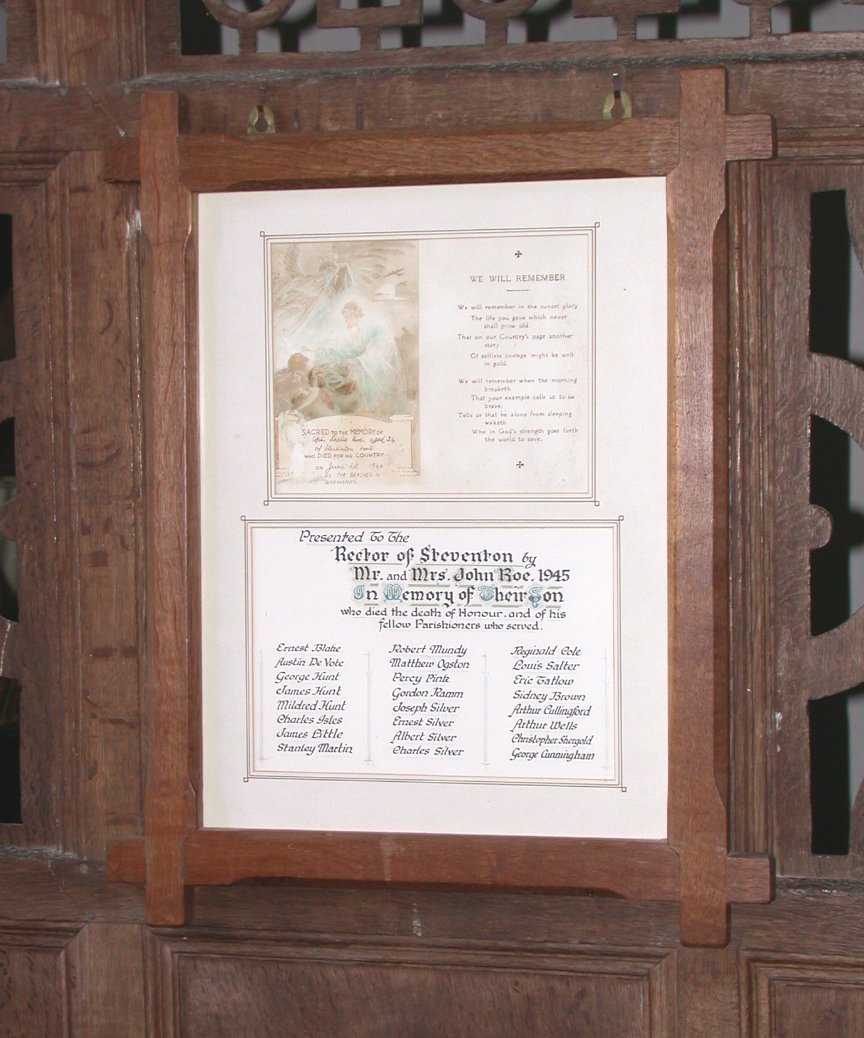 WE WILL REMEMBER
We will remember in the sunset glory
The life you gave which never
shall grow old.
That on our Country's page another
story
Of selfless courage might be writ
in gold.
We will remember when the morning
breaketh
That your example calls us to be
brave.
Tells us that he alone from sleeping
waketh
Who in God's strength goes forth
the world to save.
SACRED TO THE MEMORY OF
Leslie Roe, aged 24
of Steventon Hants
WHO DIED FOR HIS COUNTRY
ON June 6th 1944
THE BEACHES
NORMANDY.
Presented To The
Rector of Steventon by
Mr. and Mrs. John Roe. 1945
In Memory of Their Son
who died the death of Honour. and of his
fellow Parishioners who served.
Ernest Blake
Austin De Vote
George Hunt
James Hunt
Mildred Hunt
Charles Isles
James Little
Stanley Martin
Robert Mundy
Matthew Ogston
Percy Pink
Gordon Ramm
Joseph Silver
Ernest Silver
Albert Silver
Charles Silver
Reginald Cole
Louis Salter
Eric Tatlow
Sidney Brown
Arthur Cullingford
Arthur Wells
Christopher Shergold
George Cunningham